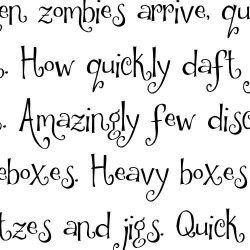 en zombies arrive, qu
. How quickly daft
. Amazingly few disc
eboxes. Heavy boxes
tzes and jigs. Quick